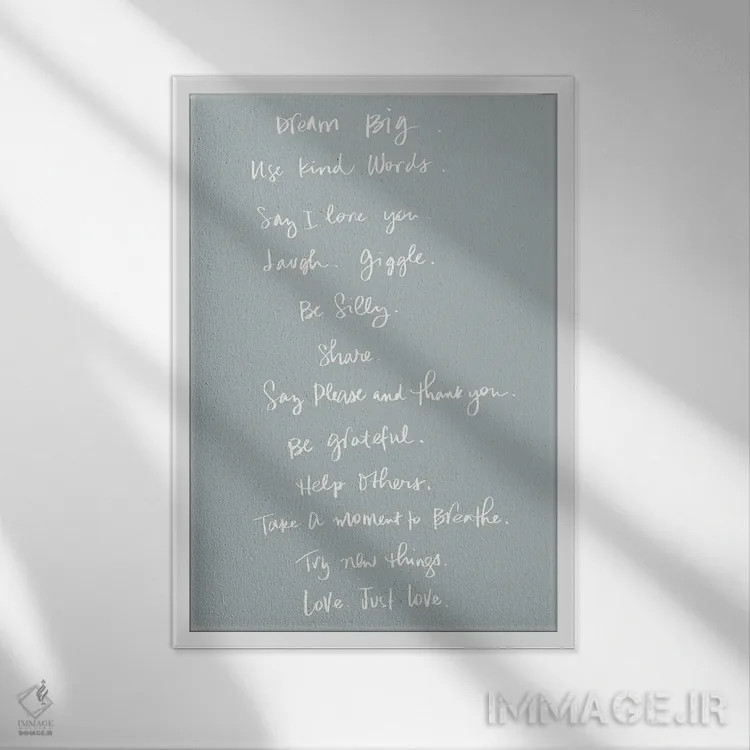 Dream Big.
Use Kind Words.
Say I love you
Laugh. Giggle.
Be Silly.
Share.
Say Please and thank you.
Be grateful.
Help Others.
Take a moment to Breathe.
Try new things.
Love. Just Love.
IMMAGE
IMMAGE.IR
IMMAGE.IR